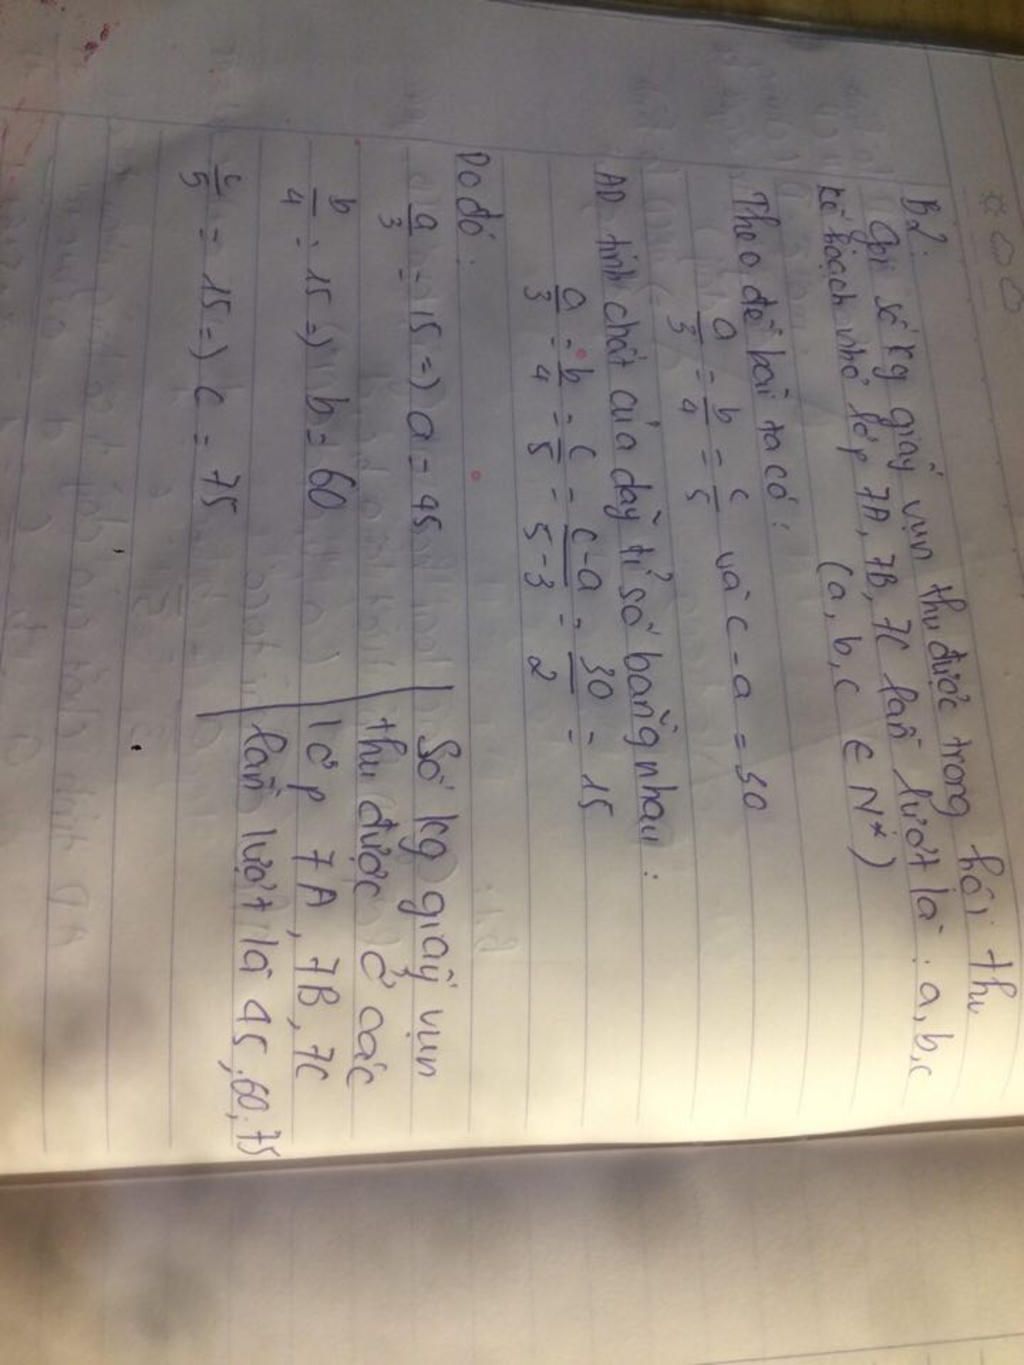 B2:
Gọi số kg giấy vụn thu được trong hội thu
kế hoạch nhỏ lớp 7A, 7B, 7C lần lượt là: a, b, c
(a, b, c ∈ N*)
Theo đề bài ta có:
a/3 = b/4 = c/5 và c - a = 30
AD tính chất của dãy tỉ số bằng nhau:
a/3 = b/4 = c/5 = c-a/5-3 = 30/2 = 15
Do đó:
a/3 = 15 => a = 45
b/4 = 15 => b = 60
c/5 = 15 => c = 75
Số kg giấy vụn
thu được ở các
lớp 7A, 7B, 7C
lần lượt là 45, 60, 75